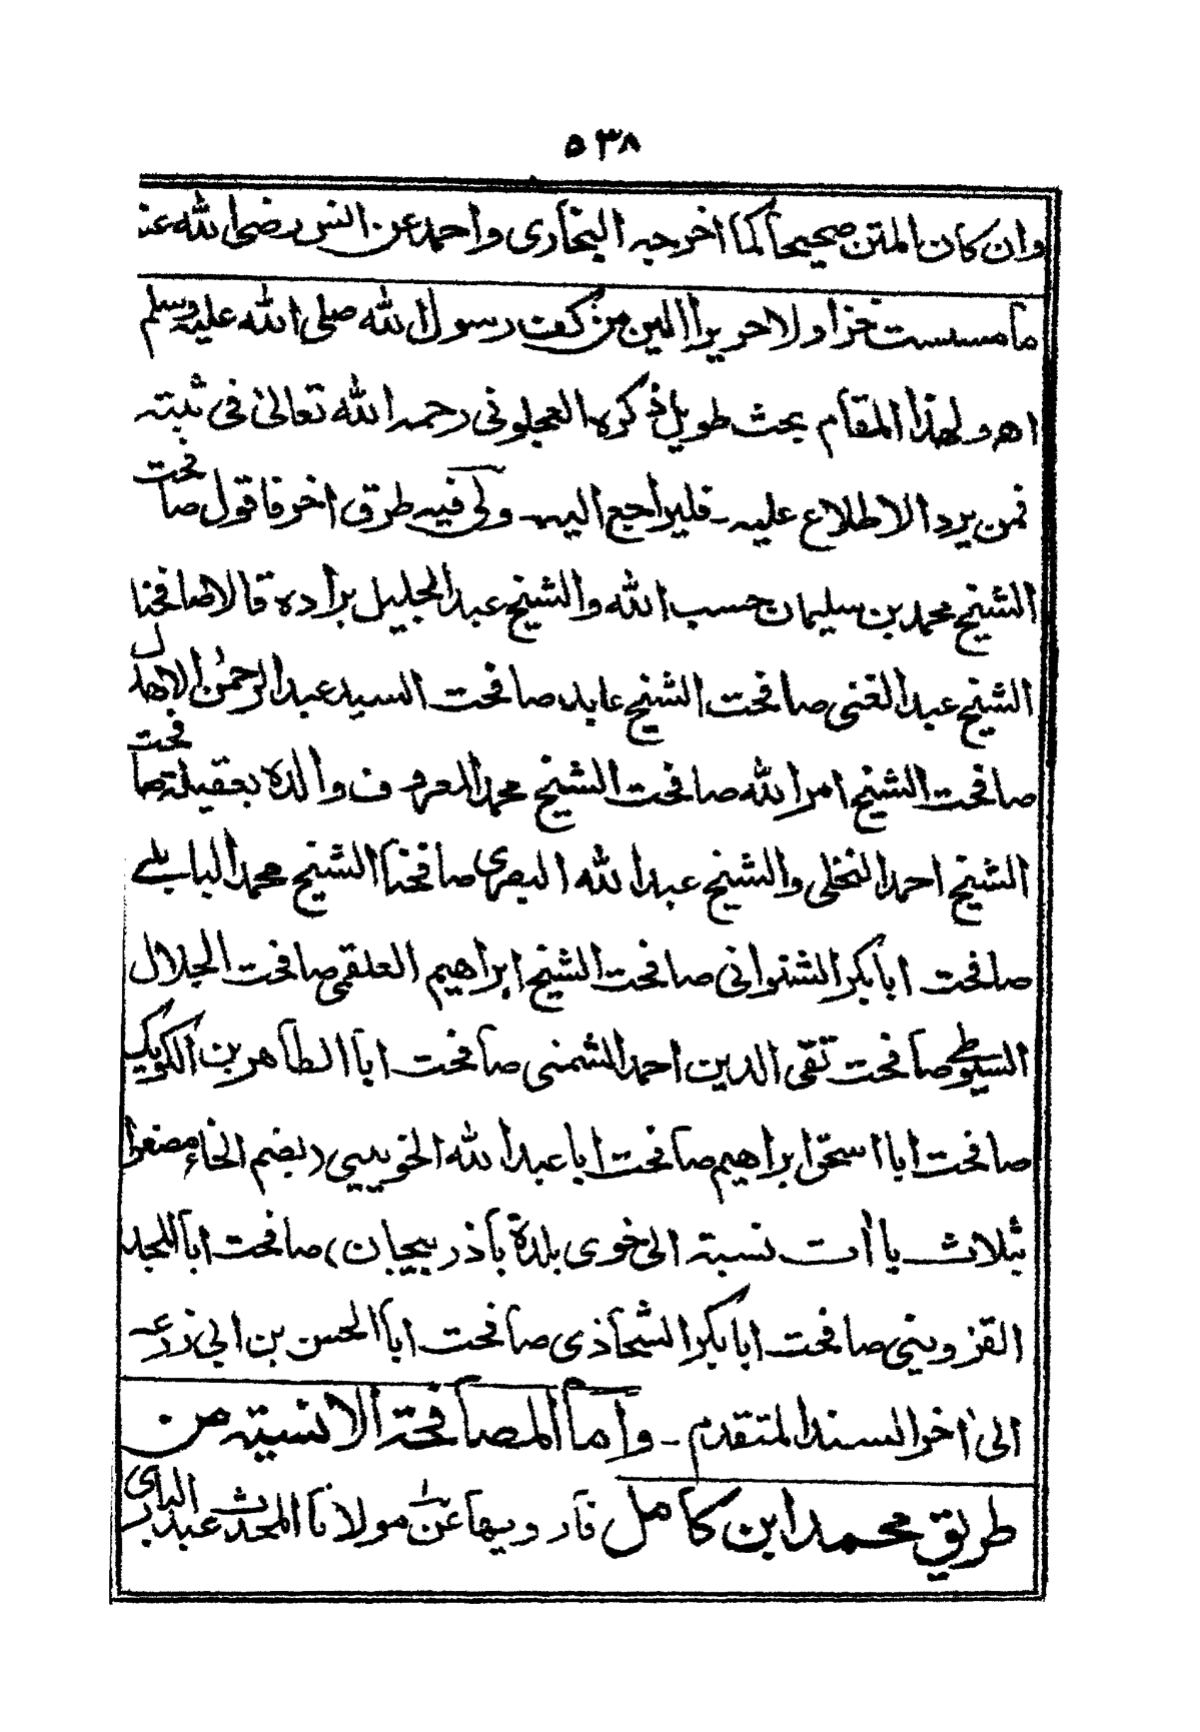 ٥٣٨
وان كان المتن صحيحا كما اخرجه البخارى واحمد عن انس رضى الله عنه
ما مسست خزا ولا حريرا الين من كف رسول الله صلى الله عليه وسلم
اھ ولهذا المقام بحث طويل ذكره العجلونى رحمه الله تعالىٰ فى ثبته
فمن يرد الاطلاع عليه ـ فليراجع اليه ـ ولى فيه طرق اخر فاقول صافحت
الشيخ محمد بن سليمان حسب الله والشيخ عبد الجليل برادة قالا صافحنا
الشيخ عبد الغنى صافحت الشيخ عابد صافحت السيد عبد الرحمٰن الاهدل
صافحت الشيخ امر الله صافحت الشيخ محمد المعروف والده بعقيلة صافحت
الشيخ احمد النخلى والشيخ عبد الله البصرى صافحنا الشيخ محمد البابلے
صافحت ابا بكر الشنوانى صافحت الشيخ ابراهيم العلقمى صافحت الجلال
السيوطى صافحت تقى الدين احمد الشمنى صافحت ابا الطاهر بن الكويك
صافحت ابا اسحق ابراهيم صافحت ابا عبد الله الخويى (بضم الخاء مصغرا
بثلاث ياأت نسبة الى خوى بلدة باذربيجان) صافحت ابا المجد
القزوينى صافحت ابا بكر الشحاذى صافحت ابا الحسن بن ابى زرعه
الىٰ اخر السند المتقدم ـ واما المصافحة الانسية من
طريق محمد ابن كامل فارويها عن مولانا المحدث عبد البارى